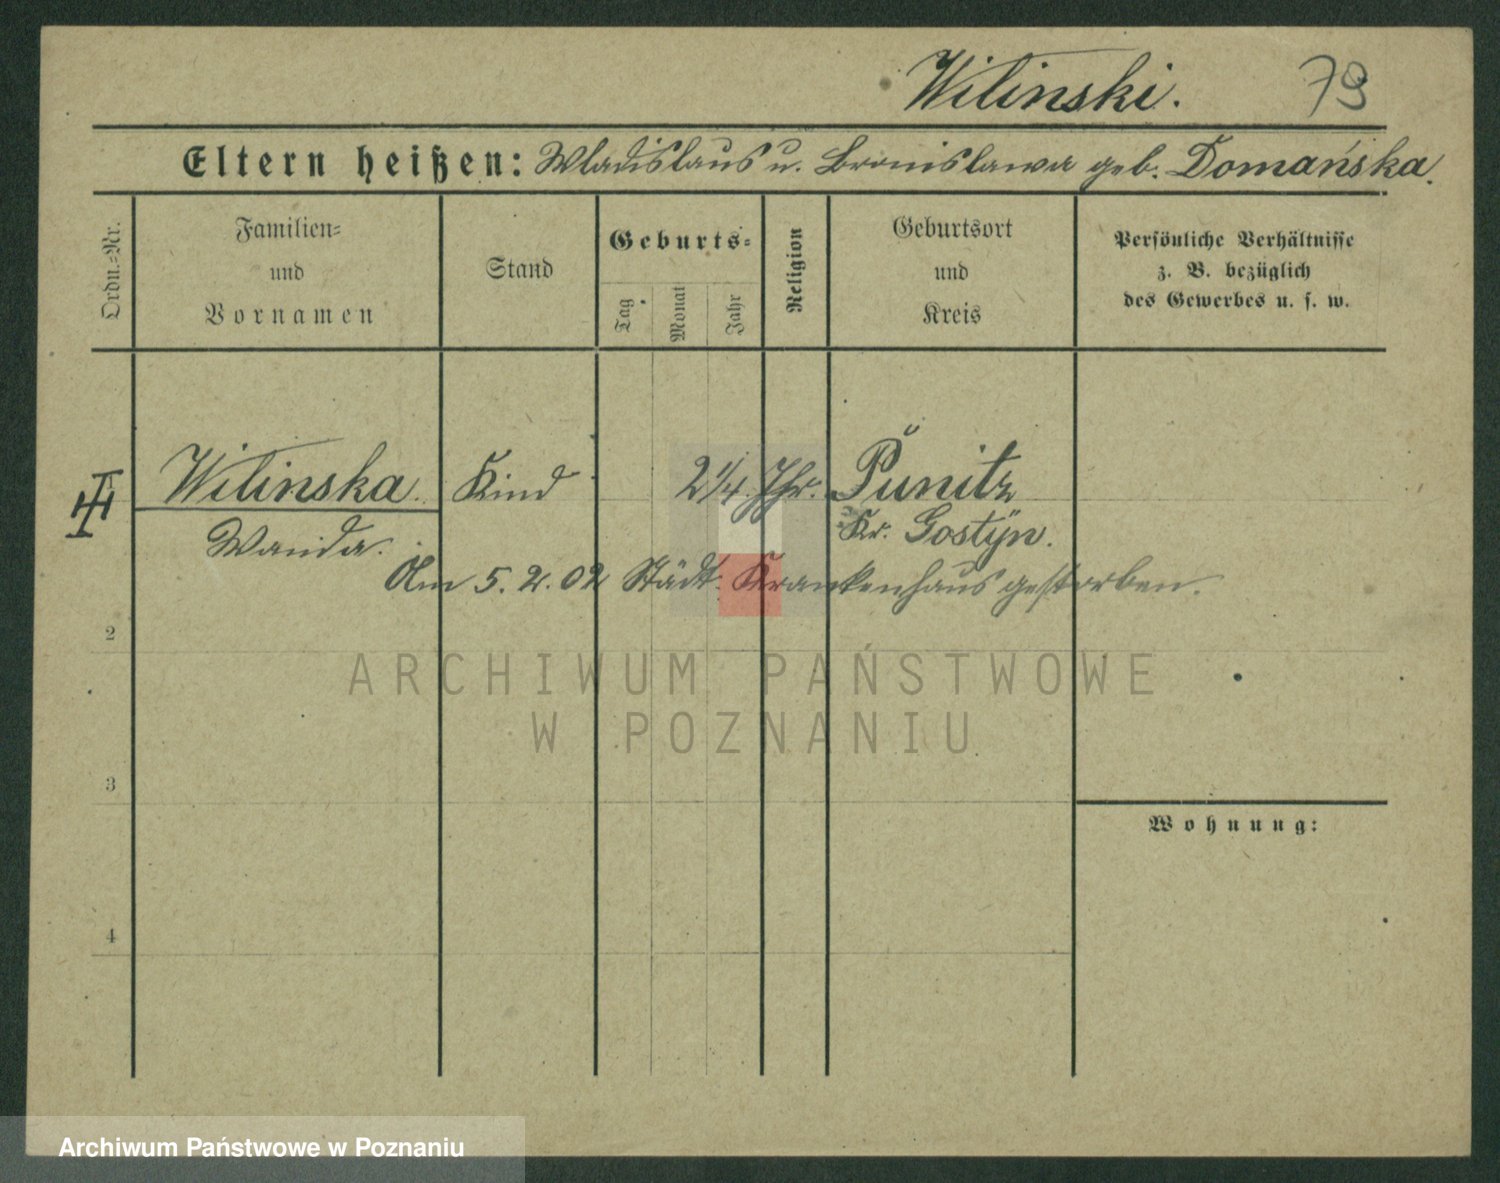 Wilinski. 79
Eltern heißen: Wladislaus u. Bronislawa geb. Domańska.
Ordn.-Nr.
Familien-
und
Vornamen
Stand
Geburts-
Tag
Monat
Jahr
Religion
Geburtsort
und
Kreis
Persönliche Verhältnisse
z. B. bezüglich
des Gewerbes u. s. w.
Wilinska Kind 2 1/4 Jhr. Punitz
Wanda. Kr. Gostyn.
Am 5.2.02 Städt. Krankenhaus gestorben.
2
ARCHIWUM PAŃSTWOWE
W POZNANIU
3
Wohnung:
4
Archiwum Państwowe w Poznaniu